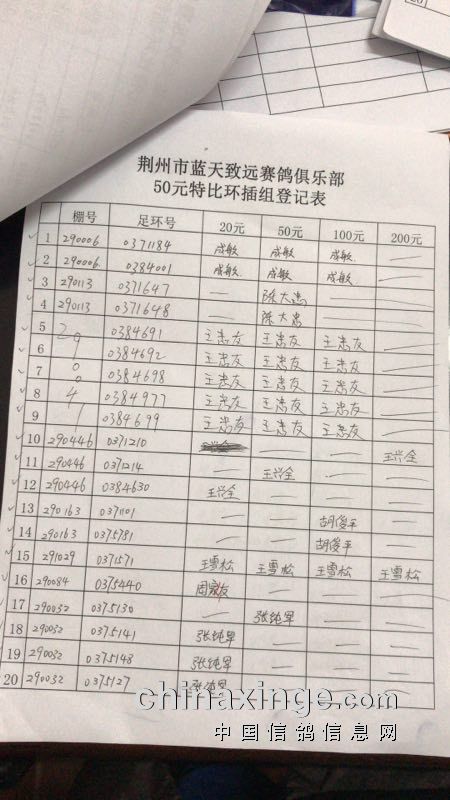 荆州市蓝天致远赛鸽俱乐部
50元特比环插组登记表
棚号 足环号 20元 50元 100元 200元
1 290006 0371184 成敏 成敏 成敏 —
2 290006 0384001 成敏 成敏 成敏 —
3 290113 0371647 — 陈大忠 — —
4 290113 0371648 — 陈大忠 — —
5 0384691 王忠友 王忠友 王忠友 —
6 0384692 王忠友 王忠友 王忠友 —
7 0384698 王忠友 王忠友 王忠友 —
8 0384977 王忠友 王忠友 王忠友 —
9 0384699 王忠友 王忠友 王忠友 —
10 290446 0371210 — — 王兴全
11 290446 0371214 — 王兴全 — —
12 290446 0384630 王兴全 — — —
13 290163 0371101 — — 胡俊平 —
14 290163 0375781 — — 胡俊平 —
15 291029 0371571 王雪松 王雪松 王雪松 王雪松
16 290084 0375440 周家友 — — —
17 290032 0375130 — 张纯军 — —
18 290032 0375141 张纯军 — — —
19 290032 0375148 张纯军 — — —
20 290032 0375127 张纯军 —
chinaxinge.com
中国信鸽信息网